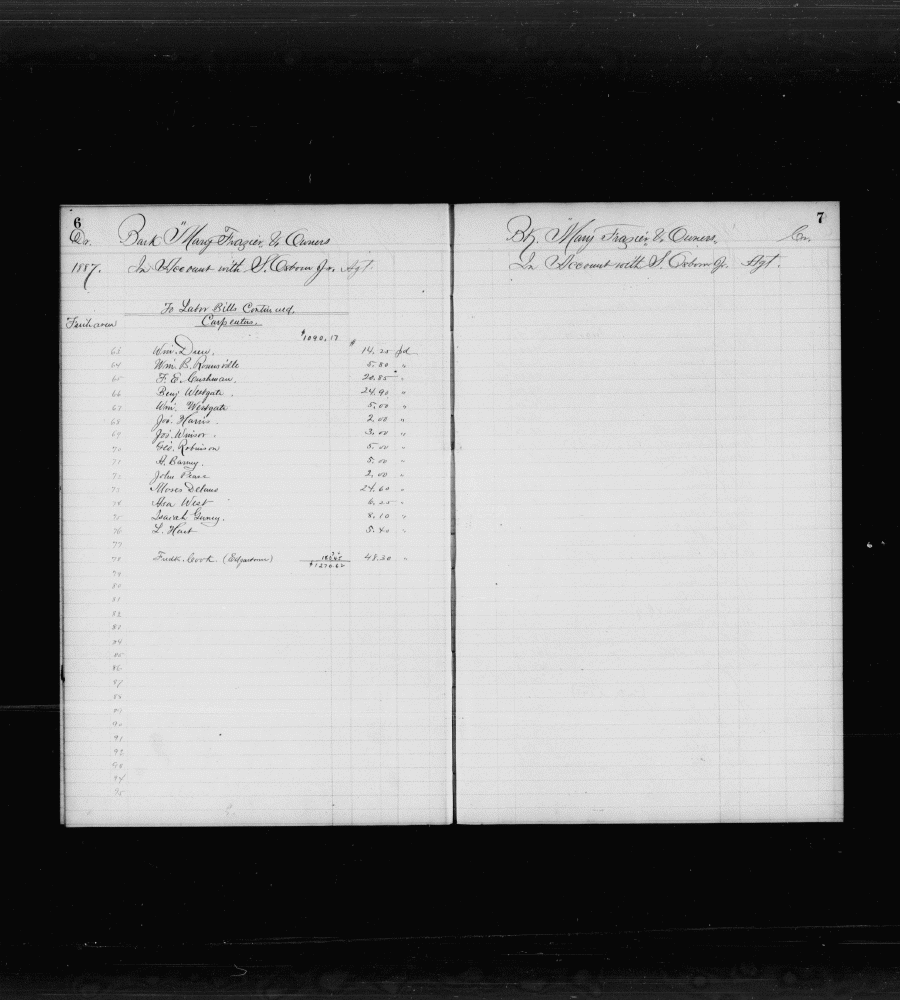 6
Dr. Bark "Mary Frazier, & Owners
1887. In Account with S. Osborn Jr. Agt.
To Labor Bills Continued,
Fairhaven Carpenters.
$1090.17 $
63 Wm. Drew. 14.25 pd
64 Wm. B. Rounsville 5.80 "
65 F. E. Cushman. 20.85 "
66 Benj Westgate. 24.90 "
67 Wm. Westgate 5.00 "
68 Jos. Harris. 2.00 "
69 Jos. Winsor. 3.00 "
70 Geo. Robinson 5.00 "
71 A. Barney. 5.00 "
72 John Pease 2.00 "
73 Moses Delano 24.60 "
74 Asa West 6.25 "
75 Isaiah Gurney. 8.10 "
76 L. Hunt 5.40 "
77
78 Fredk. Cook. (Edgartown) 48.30 "
$1270.62
79
80
81
82
83
84
85
86
87
88
89
90
91
92
93
94
95
7
Bk. "Mary Frazier, & Owners, Cr.
In Account with S. Osborn Jr. Agt.